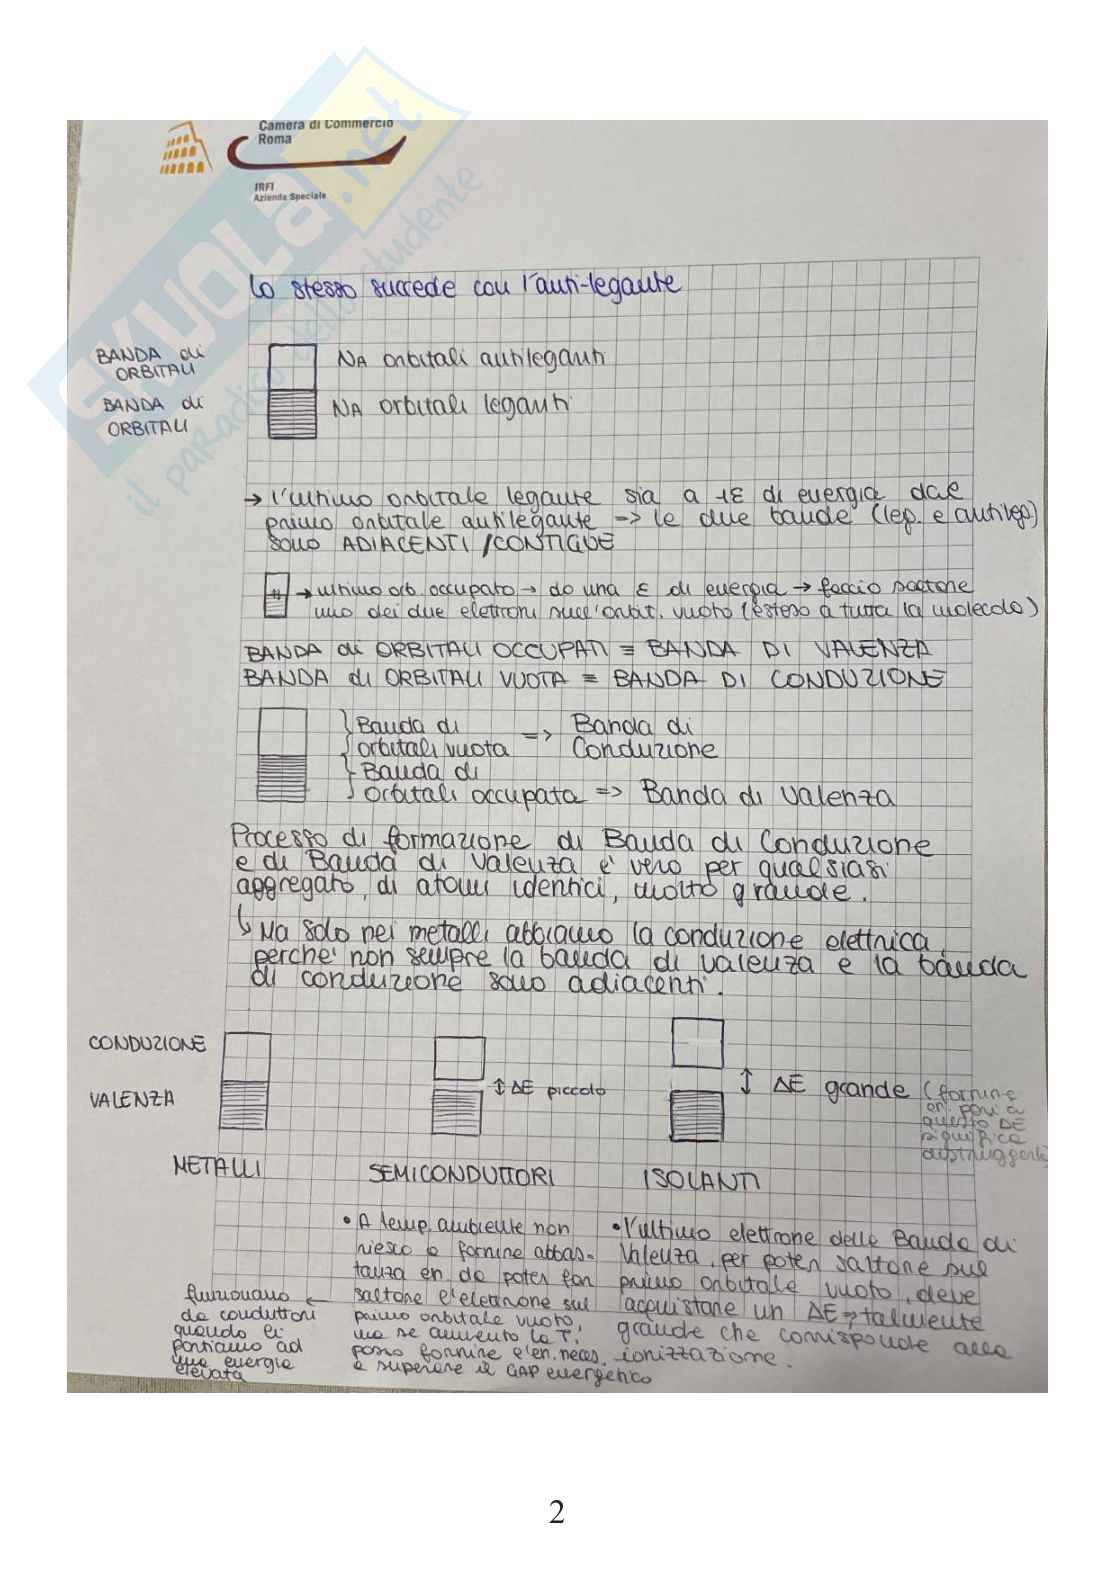 Camera di Commercio
Roma
IRFI
Azienda Speciale
SKUOLA.net
il paradiso dello studente
Lo stesso succede con l'anti-legante
BANDA di
ORBITALI
NA orbitali antileganti
BANDA di
ORBITALI
NA orbitali leganti
→ l'ultimo orbitale legante sia a 1ε di energia dal
primo orbitale antilegante => le due bande (leg. e antileg)
sono ADIACENTI /CONTIGUE
→ ultimo orb. occupato → do una ε di energia → faccio saltare
uno dei due elettroni sull'orbit. vuoto (esteso a tutta la molecola)
BANDA di ORBITALI OCCUPATI ≡ BANDA DI VALENZA
BANDA di ORBITALI VUOTA ≡ BANDA DI CONDUZIONE
Banda di
orbitali vuota => Banda di
Conduzione
Banda di
orbitali occupata => Banda di Valenza
Processo di formazione di Banda di Conduzione
e di Banda di Valenza è vero per qualsiasi
aggregato, di atomi identici, molto grande.
↳ Ma solo nei metalli abbiamo la conduzione elettrica,
perché non sempre la banda di valenza e la banda
di conduzione sono adiacenti.
CONDUZIONE
VALENZA
↕ ΔE piccolo
↕ ΔE grande (fornire
en. pari a
questo ΔE
significa
distruggerli)
METALLI
SEMICONDUTTORI
ISOLANTI
• A temp. ambiente non
riesco a fornire abbas-
tanza en. da poter far
saltare l'elettrone sul
primo orbitale vuoto,
ma se aumento la T.
posso fornire l'en. neces.
e superare il GAP energetico
funzionano ←
da conduttori
quando li
portiamo ad
una energia
elevata
• L'ultimo elettrone della Banda di
Valenza, per poter saltare sul
primo orbitale vuoto, deve
acquistare un ΔE → talmente
grande che corrisponde alla
ionizzazione.
2